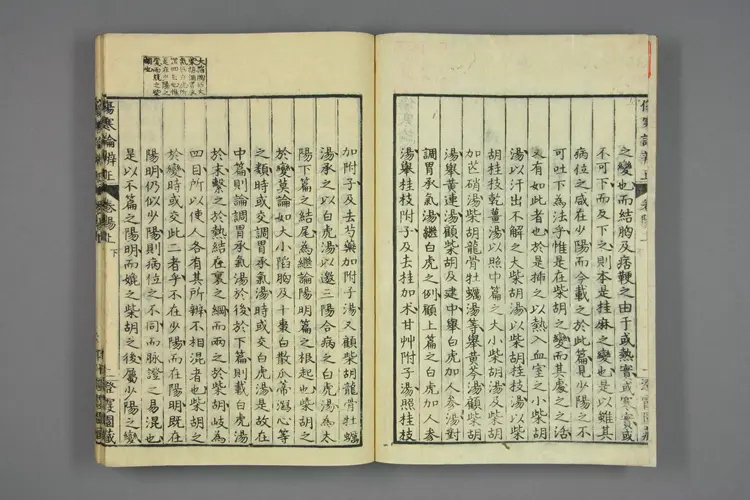 之變也而結胸及痞鞕之由于或熱實或寒實或
不可下而及下之則本是桂麻之變也是以雖其
病位之感在少陽而令載之於此篇見少陽之不
可吐下為法乎惟是在柴胡之變而其處之之活
又有如此者也於是揷之以熱入血室之小柴胡
湯以汗出不解之大柴胡湯以柴胡桂枝湯以柴
胡桂枝乾薑湯以照中篇之大小柴胡湯及柴胡
加芒硝湯柴胡龍骨牡蠣湯等舉黃芩湯顧柴胡
湯舉黃連湯顧柴胡及建中舉白虎加人參湯對
調胃承氣湯繼白虎之例顧上篇之白虎加人參
湯舉桂枝附子及去桂加朮甘艸附子湯照桂枝
加附子及去芍藥加附子湯又顧柴胡龍骨牡蠣
湯承之以白虎湯以邀三陽合病之白虎湯為太
陽下篇之結尾為繼論陽明篇之根起也柴胡之
於變莫論如大小陷胸及十棗白散瓜蒂瀉心等
之類時或交調胃承氣湯時或交白虎湯是故在
中篇則論調胃承氣湯於後於下篇則載白虎湯
於末繫之於熱結在裏之綱而兩之於柴胡歧為
四目所以使人各有其所辨不相混者也柴胡之
於變時或交此二者乎不在少陽而在陽明既在
陽明仍似少陽則病位之不同而脉證之易混也
是以不篇之陽明而媲之柴胡之後屬少陽之變
傷寒論辨正